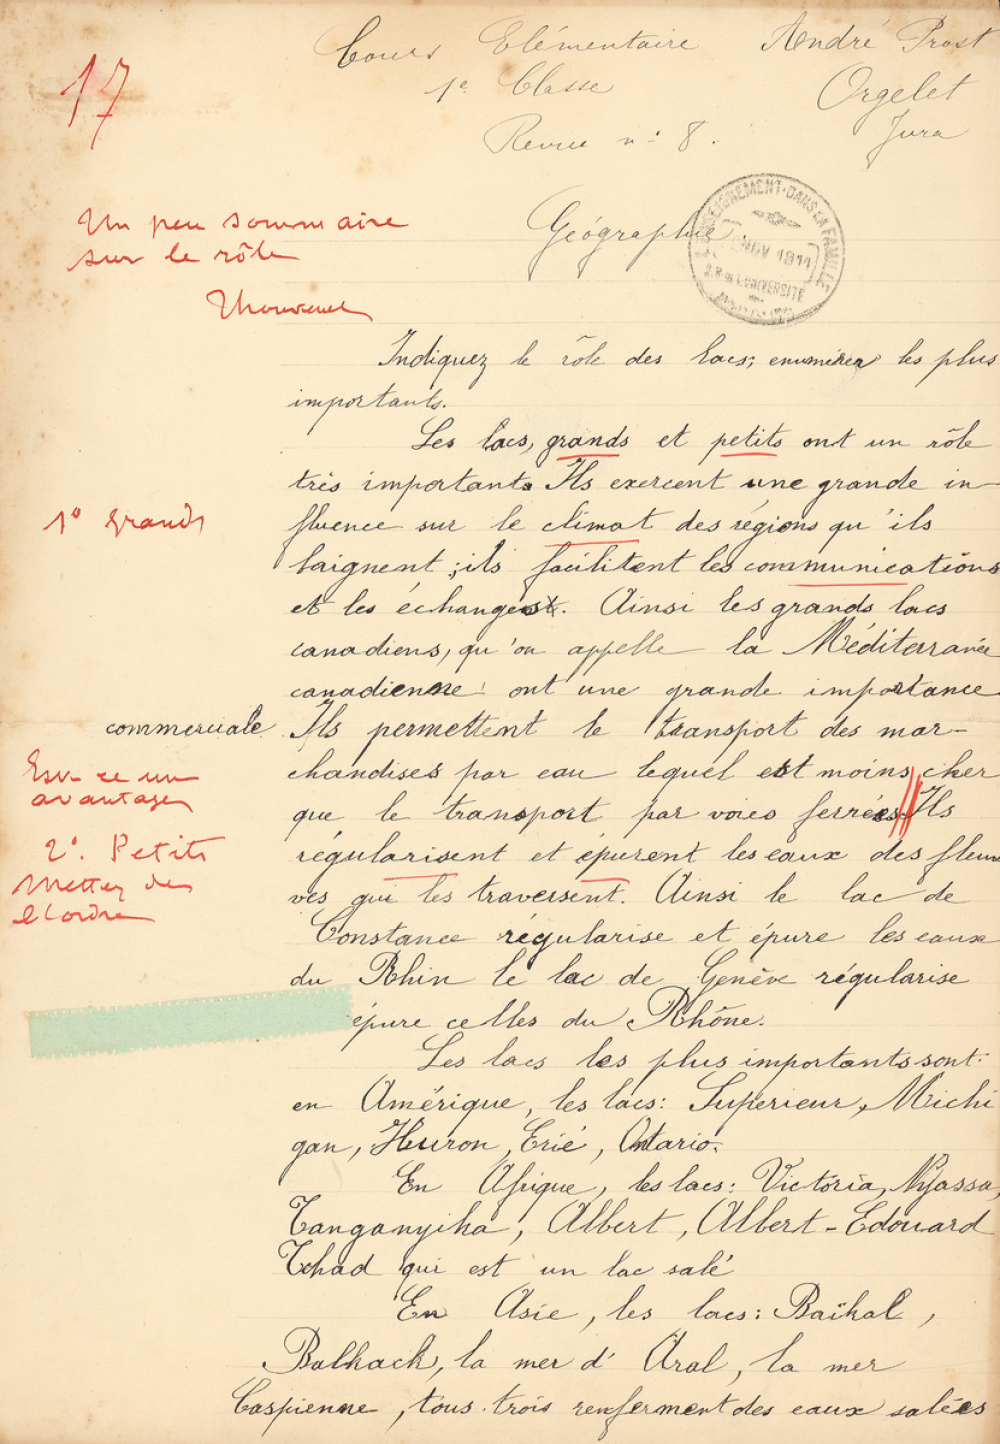 Cours Elémentaire André Prost
17
1e Classe Orgelet
Revue n: 8. Jura
ENSEIGNEMENT DANS LA FAMILLE
NOV 1911
UNIVERSITÉ
Géographie
Un peu sommaire
sur le rôle
Indiquez le rôle des lacs; enumérer les plus
importants.
Les lacs, grands et petits ont un rôle
très important. Ils exercent une grande in-
1° Grands
fluence sur le climat des régions qu'ils
baignent; ils facilitent les communications
et les échanges. Ainsi les grands lacs
canadiens, qu'on appelle la Méditerranée
canadienne ont une grande importance
commerciale. Ils permettent le transport des mar-
chandises par eau lequel est moins cher
Est-ce un
avantage
que le transport par voies ferrées. Ils
2°. Petits
régularisent et épurent les eaux des fleu
Mettez de
l'ordre
ves qui les traversent. Ainsi le lac de
Constance régularise et épure les eaux
du Rhin le lac de Genève régularise
épure celles du Rhône.
Les lacs les plus importants sont:
en Amérique, les lacs: Superieur, Michi
gan, Huron, Erié, Ontario.
En Afrique, les lacs: Victoria, Nyassa,
Tanganyika, Albert, Albert-Edouard
Tchad qui est un lac salé
En Asie, les lacs: Baïkal,
Balkach, la mer d'Aral, la mer
Caspienne, tous trois renferment des eaux salées